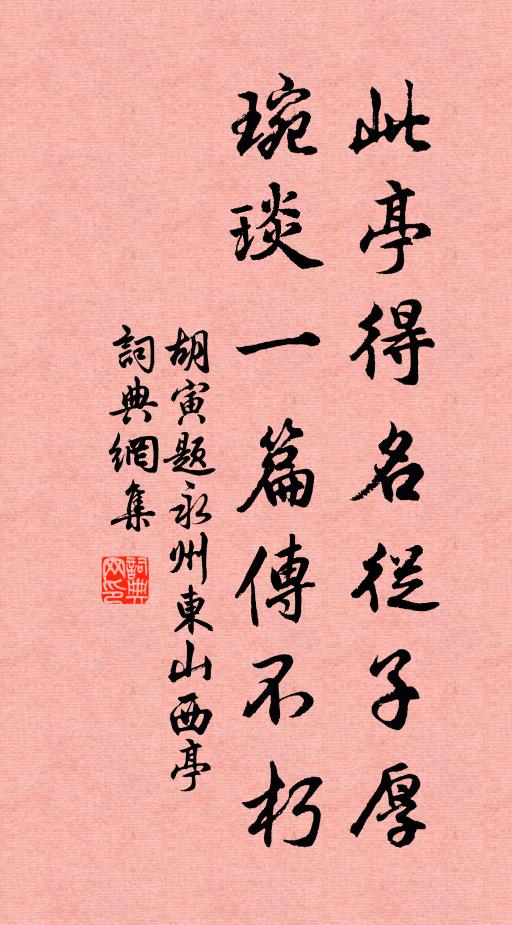 此亭得名從子厚
琬琰一篇傳不朽
胡寅題永州東山西亭
詞典網集
詞典網印